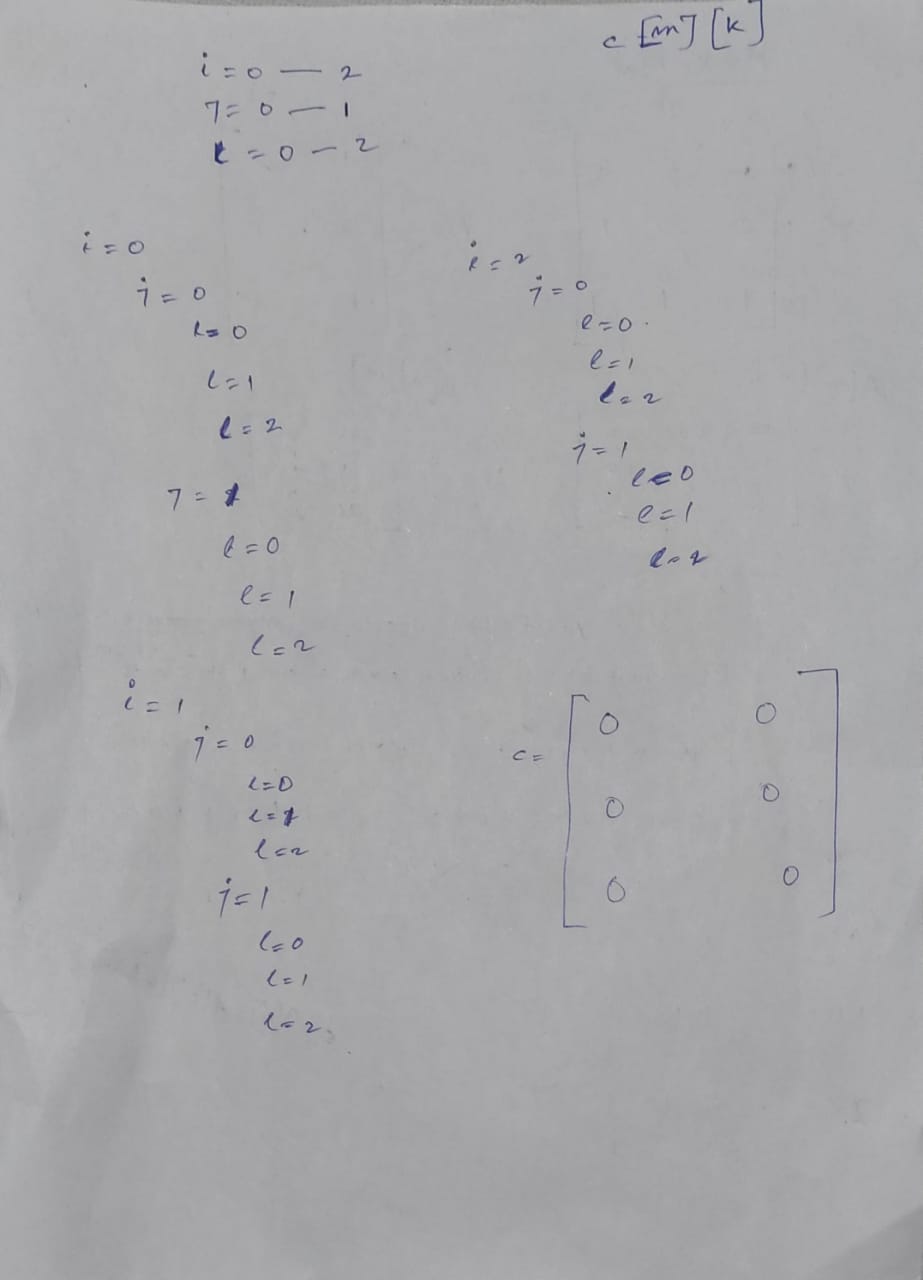 c [m] [k]
i = 0 — 2
j = 0 — 1
l = 0 — 2
i = 0
j = 0
l = 0
l = 1
l = 2
j = 1
l = 0
l = 1
l = 2
i = 1
j = 0
l = 0
l = 1
l = 2
j = 1
l = 0
l = 1
l = 2
i = 2
j = 0
l = 0
l = 1
l = 2
j = 1
l = 0
l = 1
l = 2
c = [ 0 0
0 0
0 0 ]